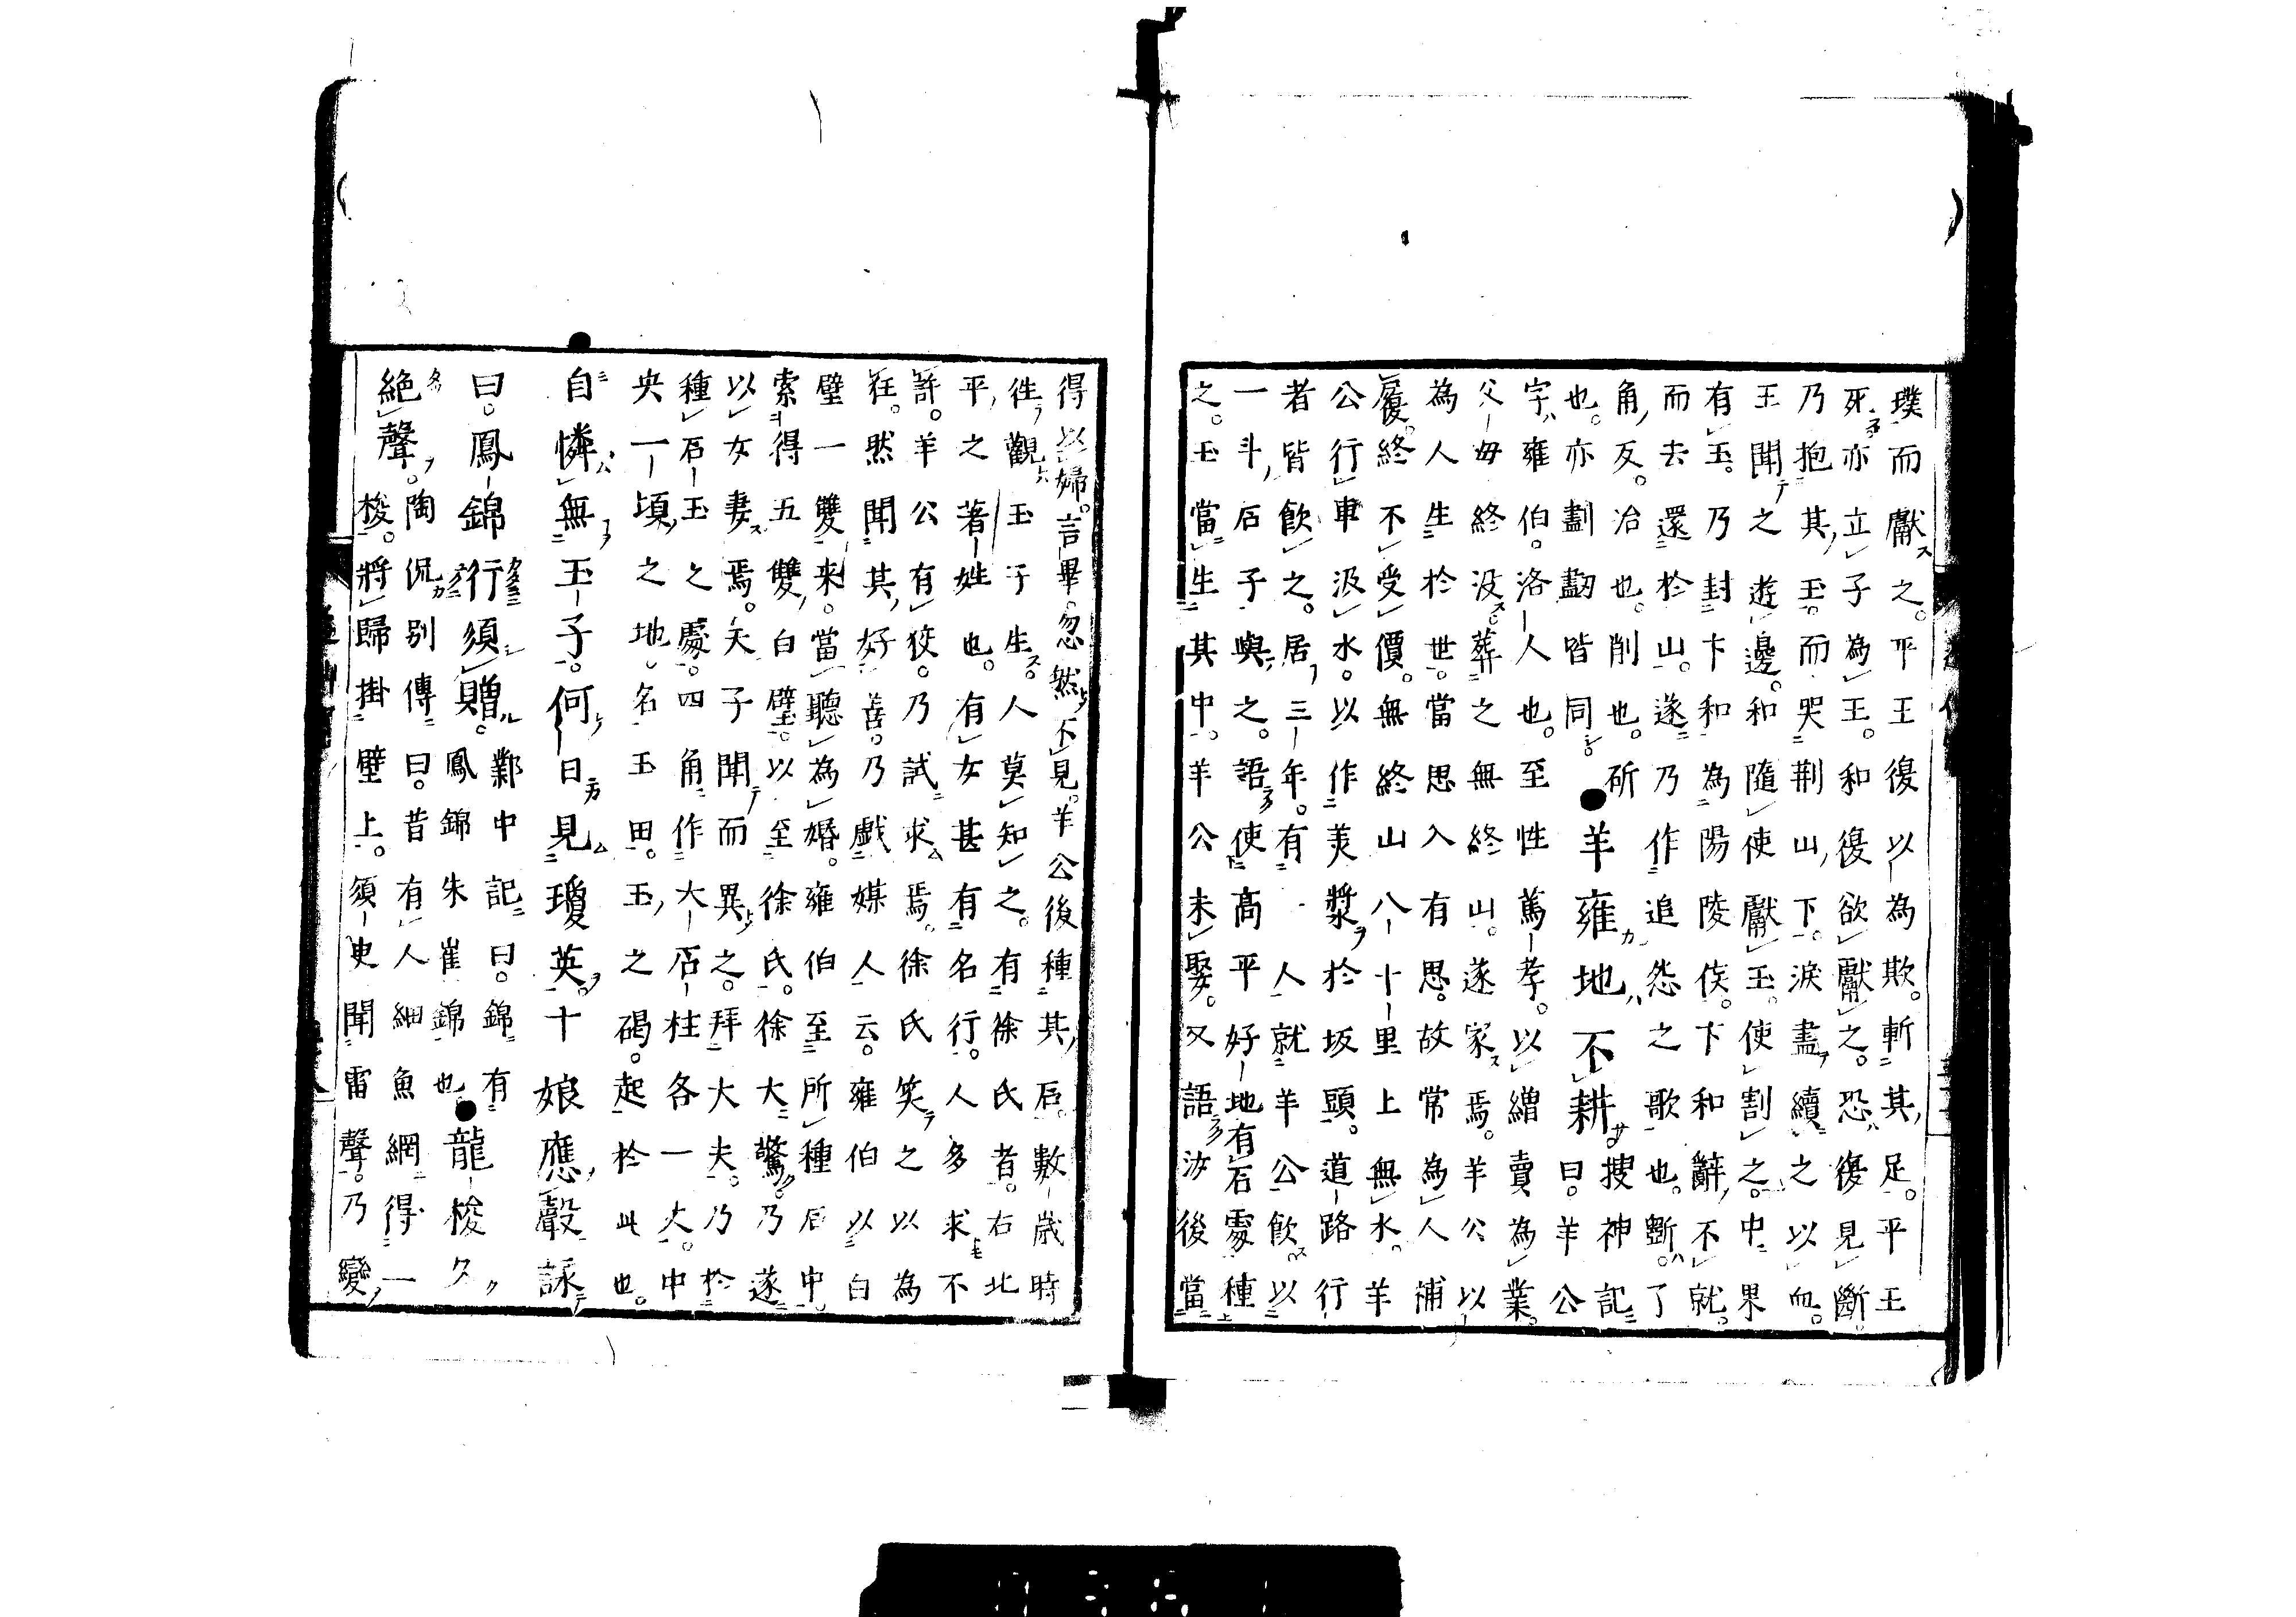 璞而獻之。平王復以為欺。斬其足。平王
死亦立子為王。和復欲獻之。恐復見斷。
乃抱其玉。而哭荆山下。淚盡續之以血。
王聞之遊邊。和隨使獻玉。使割之。中果
有玉。乃封卞和為陽陵侯。卞和辭不就。
而去還於山。遂乃作追怨之歌也。斵了
角反。冶也。削也。斫
也。亦劃劃皆同。●羊雍地不耕搜神記
字雍伯。洛人也。至性篤孝。以繒賣為業。
曰。羊公
父毋終沒葬之無終山。遂家焉。羊公以
為人生於世。當思入有思。故常為人補
履。終不受價。無終山八十里上無水。羊
公行車汲水。以作羙漿於坂頭。道路行
者皆飲之。居三年。有一人就羊公飲。以
一斗石子與之。語使髙平好地有石處種
之。玉當生其中。羊公未娶。又語汝後當
得以婦。言畢。忽然不見。羊公後種其石。數歲時
徃觀玉子生。人莫知之。有徐氏者。右北
平之著姓也。有女甚有名行。人多求不
許。羊公有狡。乃試求焉。徐氏笑之以為
狂。然聞其好善。乃戲媒人云。雍伯以白
璧一雙来。當聽為婚。雍伯至所種石中。
索得五雙白璧。以至徐氏。徐大驚。乃遂
以女妻焉。天子聞而異之。拜大夫。乃於
種石玉之處。四角作大石柱各一丈。中
央一頃之地。名玉田。玉之碣。起於此也。
自憐無玉子。何日見瓊英。十娘應聲詠
曰。鳳錦行須贈。鄴中記曰。錦有
鳳錦朱崔錦也●龍梭久
絶聲。陶侃别傳曰。昔有人細魚網得一
梭。將歸掛壁上。須臾聞雷聲。乃變